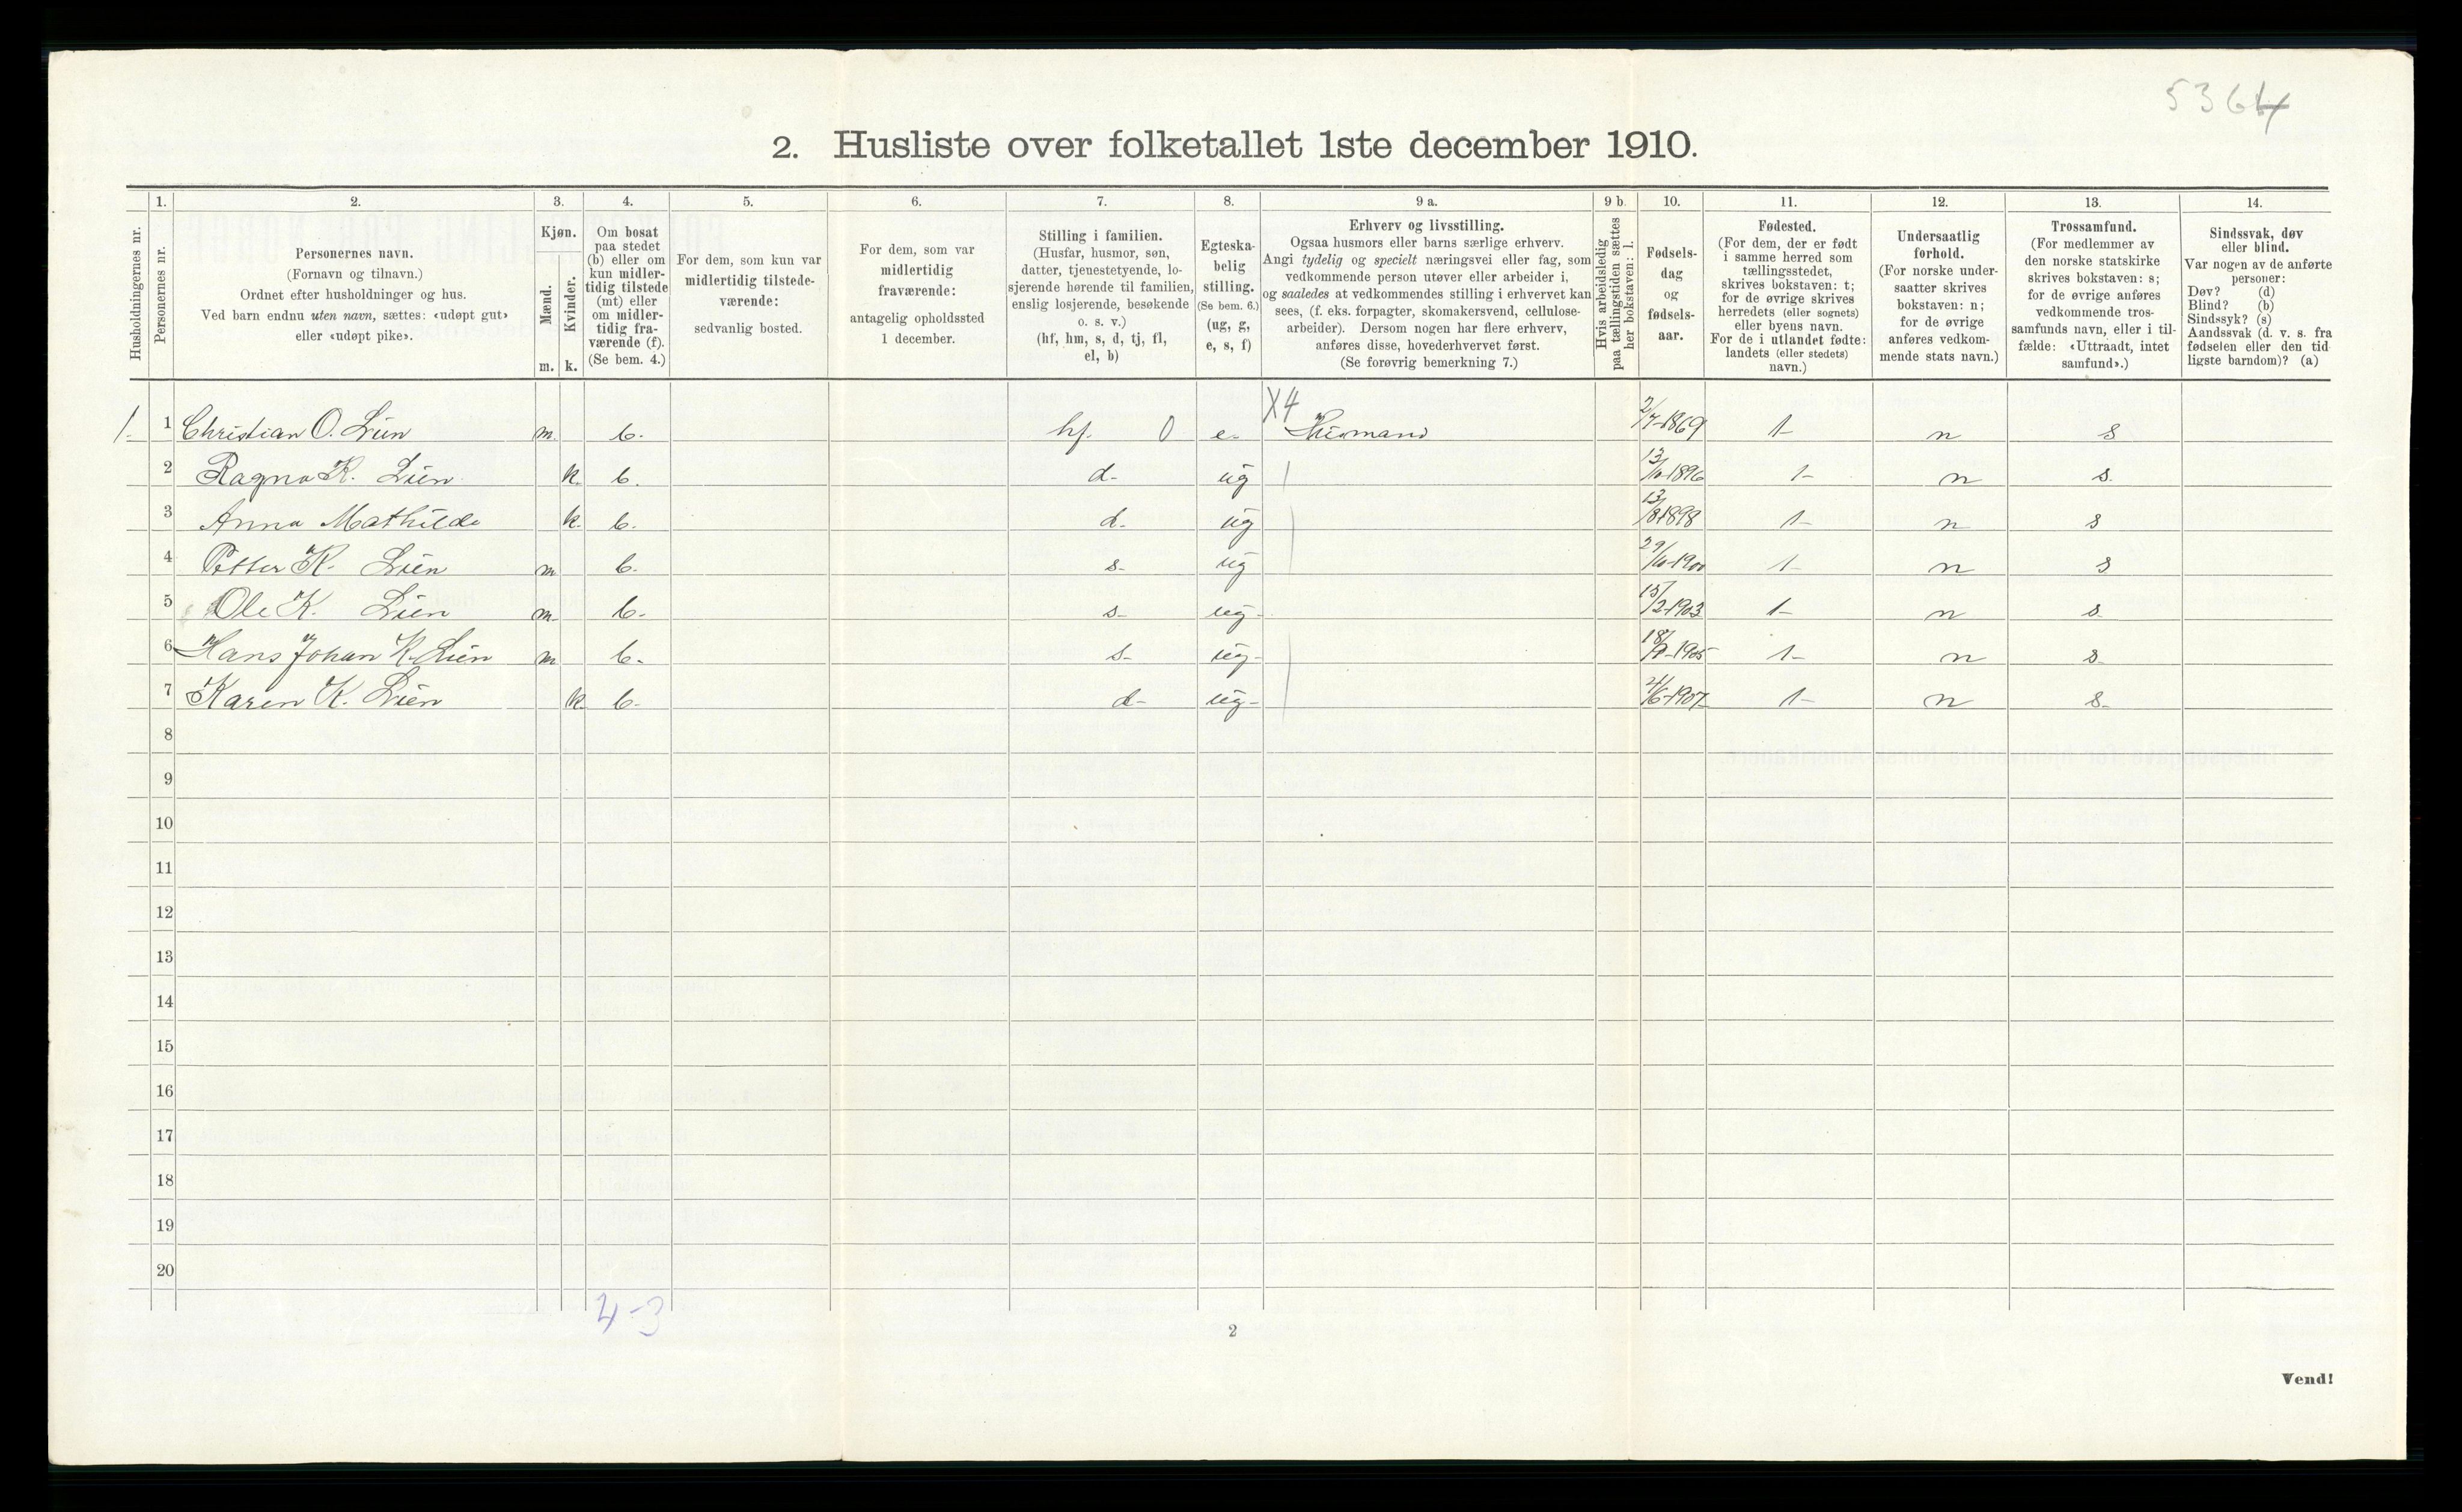 5364
2. Husliste over folketallet 1ste december 1910.
1. 2. 3. 4. 5. 6. 7. 8. 9 a. 9 b. 10. 11. 12. 13. 14.
Husholdningernes nr.
Personernes nr.
Personernes navn.
(Fornavn og tilnavn.)
Ordnet efter husholdninger og hus.
Ved barn endnu uten navn, sættes: «udøpt gut»
eller «udøpt pike».
Kjøn.
Mænd.
Kvinder.
m. k.
Om bosat
paa stedet
(b) eller om
kun midler-
tidig tilstede
(mt) eller
om midler-
tidig fra-
værende (f).
(Se bem. 4.)
For dem, som kun var
midlertidig tilstede-
værende:
sedvanlig bosted.
For dem, som var
midlertidig
fraværende:
antagelig opholdssted
1 december.
Stilling i familien.
(Husfar, husmor, søn,
datter, tjenestetyende, lo-
sjerende hørende til familien,
enslig losjerende, besøkende
o. s. v.)
(hf, hm, s, d, tj, fl,
el, b)
Egteska-
belig
stilling.
(Se bem. 6.)
(ug, g,
e, s, f)
Erhverv og livsstilling.
Ogsaa husmors eller barns særlige erhverv.
Angi tydelig og specielt næringsvei eller fag, som
vedkommende person utøver eller arbeider i,
og saaledes at vedkommendes stilling i erhvervet kan
sees, (f. eks. forpagter, skomakersvend, cellulose-
arbeider). Dersom nogen har flere erhverv,
anføres disse, hovederhvervet først.
(Se forøvrig bemerkning 7.)
Hvis arbeidsledig
paa tællingstiden sættes
her bokstaven: l.
Fødsels-
dag
og
fødsels-
aar.
Fødested.
(For dem, der er født
i samme herred som
tællingsstedet,
skrives bokstaven: t;
for de øvrige skrives
herredets (eller sognets)
eller byens navn.
For de i utlandet fødte:
landets (eller stedets)
navn.)
Undersaatlig
forhold.
(For norske under-
saatter skrives
bokstaven: n;
for de øvrige
anføres vedkom-
mende stats navn.)
Trossamfund.
(For medlemmer av
den norske statskirke
skrives bokstaven: s;
for de øvrige anføres
vedkommende tros-
samfunds navn, eller i til-
fælde: «Uttraadt, intet
samfund».)
Sindssvak, døv
eller blind.
Var nogen av de anførte
personer:
Døv? (d)
Blind? (b)
Sindssyk? (s)
Aandssvak (d. v. s. fra
fødselen eller den tid
ligste barndom)? (a)
1. 1 Christian O. Lien m. b. hf. 0 e. X4 Husmand 2/7-1869 t n s
2 Ragna K. Lien k. b. d- ug 1896 t n s
3 Anna Mathilde k. b. d. ug 13/8-1898 t n s
4 Petter K. Lien m b. s- ug 1900 t n s
5 Ole K. Lien m. b. s- ug- 15/2-1903 t n s
6 Hans Johan K. Lien m b. s- ug- 1905 t n s
7 Karen K. Lien k. b- d- ug- 1907 t n s-
8
9
10
11
12
13
14
15
16
17
18
19
20
4-3
2
Vend!